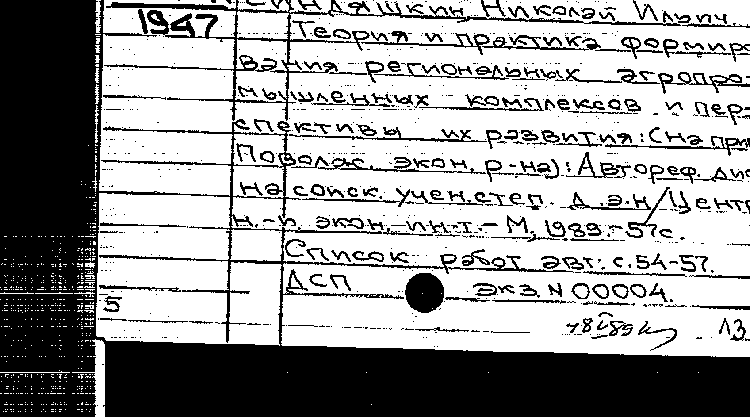 Синдяшкин, Николай Ильич.
1947
Теория и практика формиро
вания региональных агропро-
мышленных комплексов и пер
спективы их развития: (на прим
Поволж. экон. р-на): Автореф. дис
на соиск. учен. степ. д.э.н / Центр
н.-и. экон. ин-т. - М, 1989.-57с.
Список работ авт.: с.54-57.
ДСП экз. N 00004.
5
13